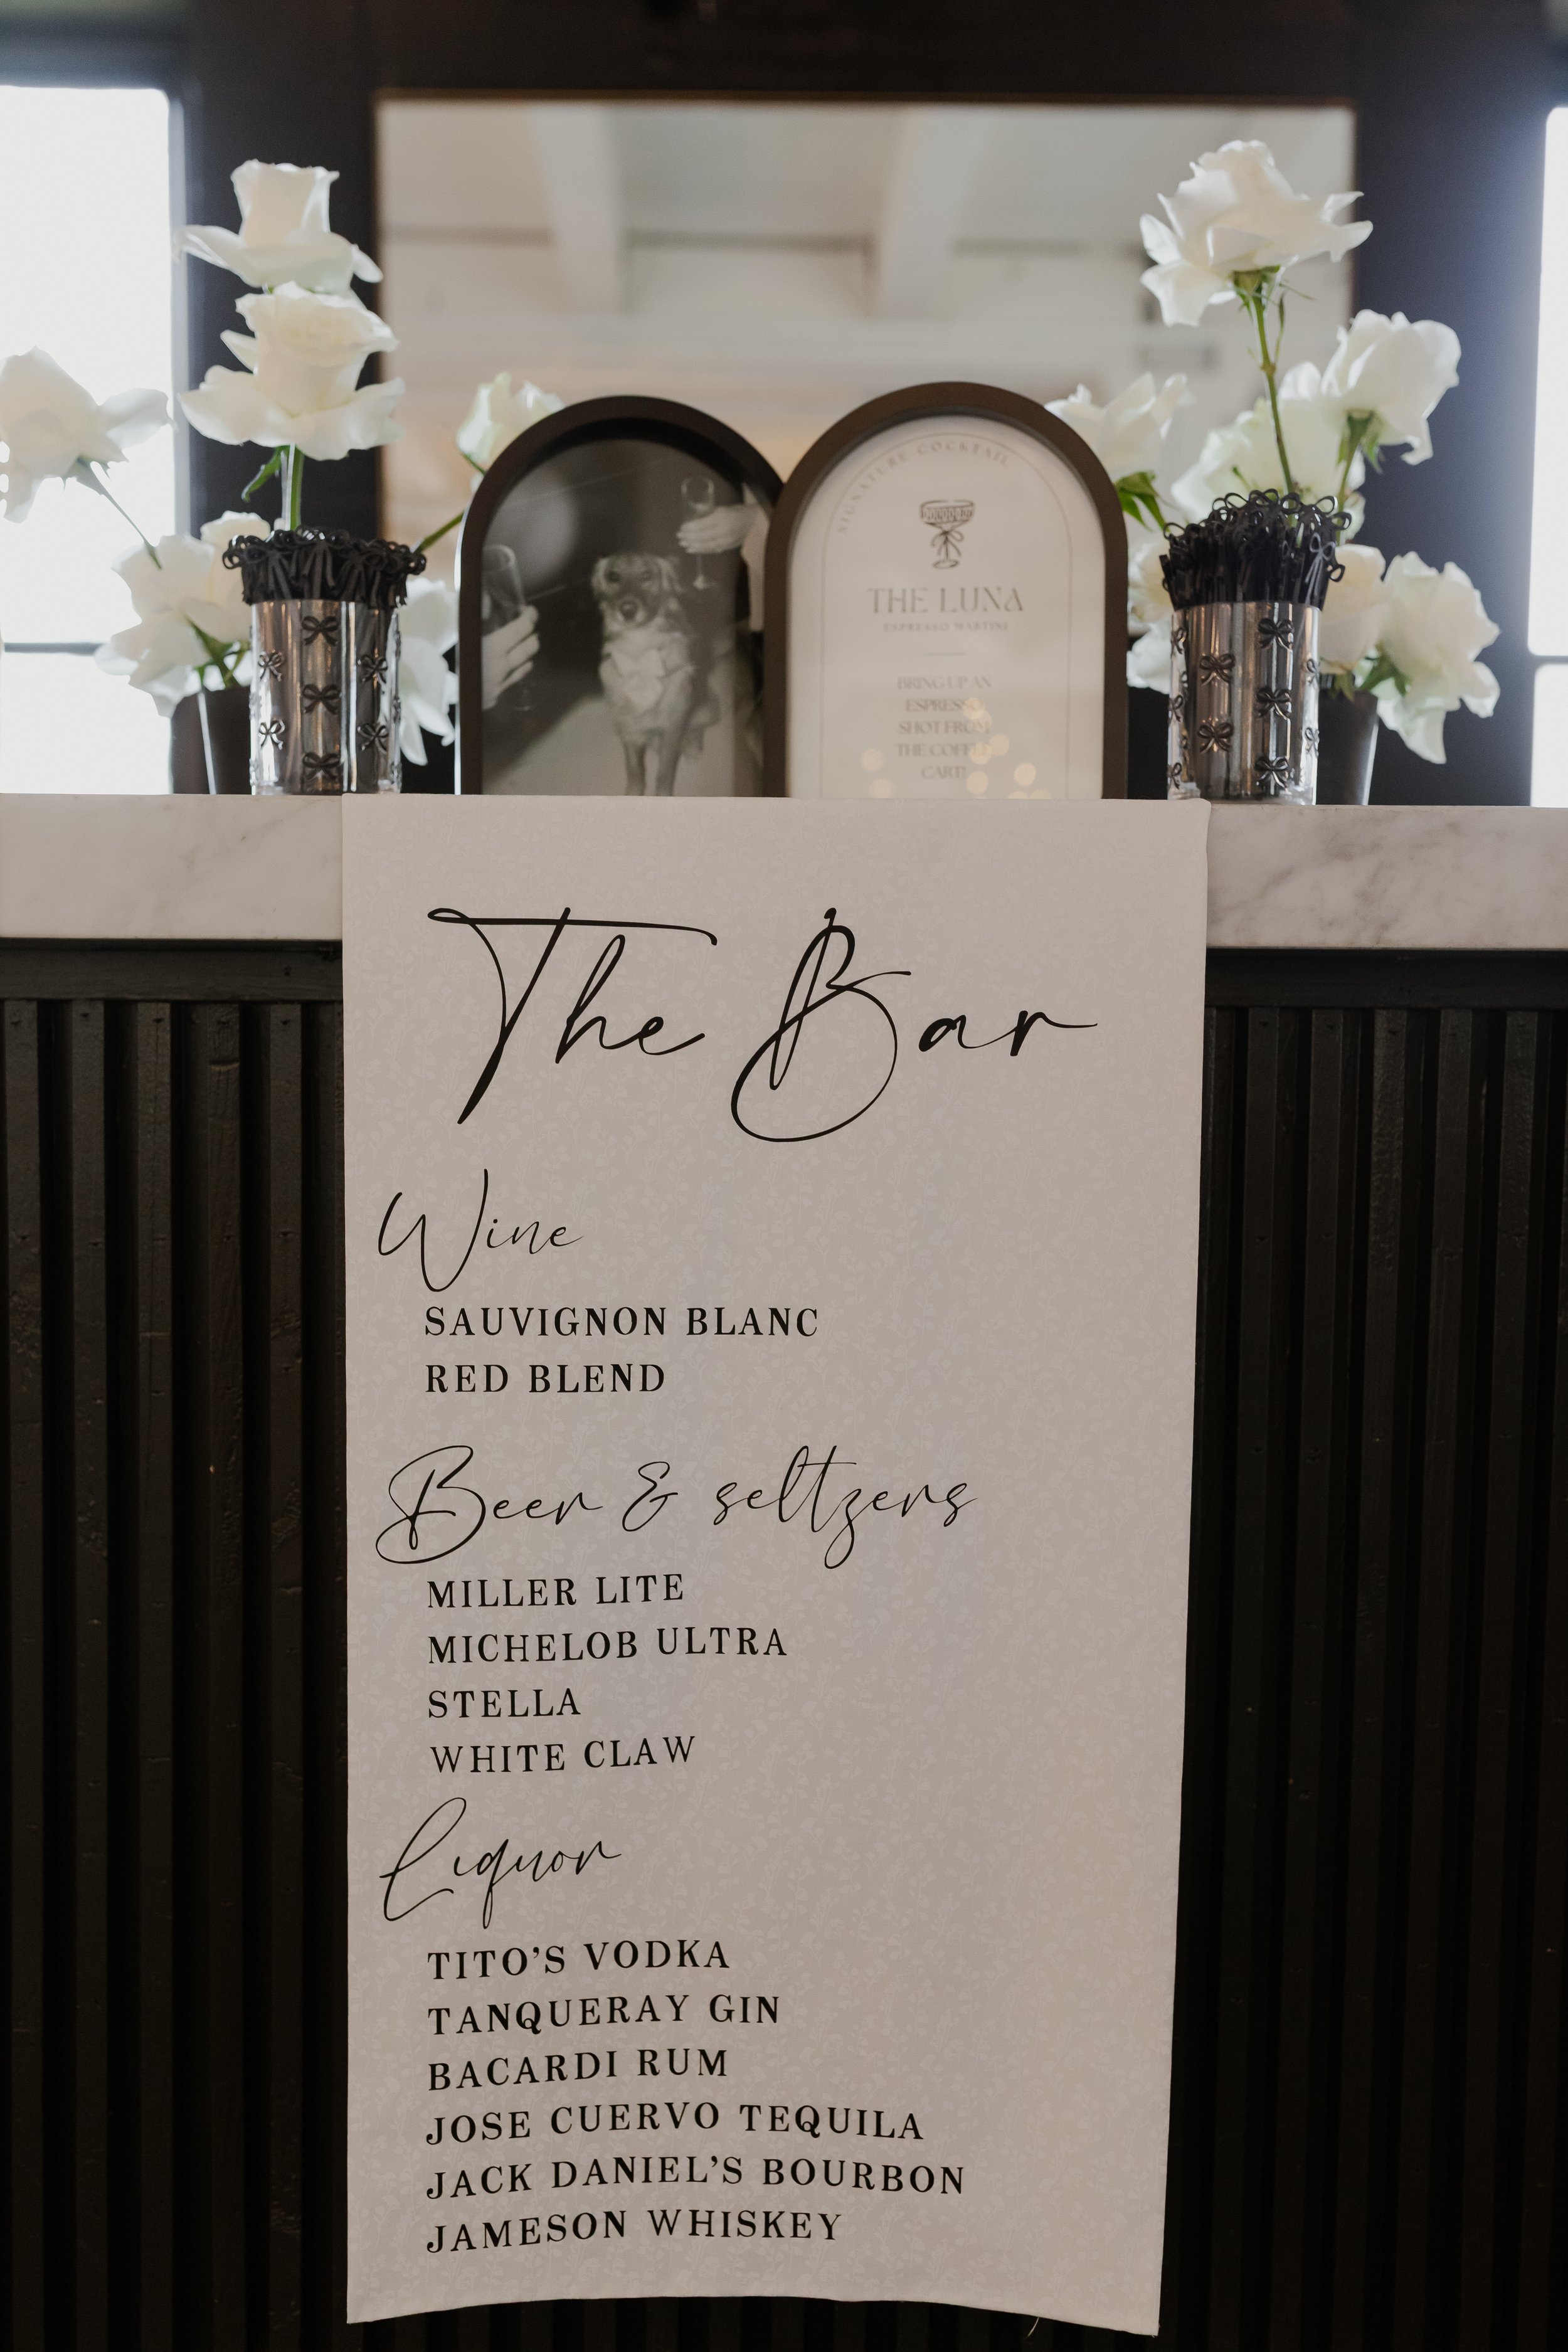 SIGNATURE COCKTAIL
THE LUNA
ESPRESSO MARTINI
BRING UP AN
ESPRESSO
SHOT FROM
THE COFFEE
CART!
The Bar
Wine
SAUVIGNON BLANC
RED BLEND
Beer & seltzers
MILLER LITE
MICHELOB ULTRA
STELLA
WHITE CLAW
Liquor
TITO’S VODKA
TANQUERAY GIN
BACARDI RUM
JOSE CUERVO TEQUILA
JACK DANIEL’S BOURBON
JAMESON WHISKEY